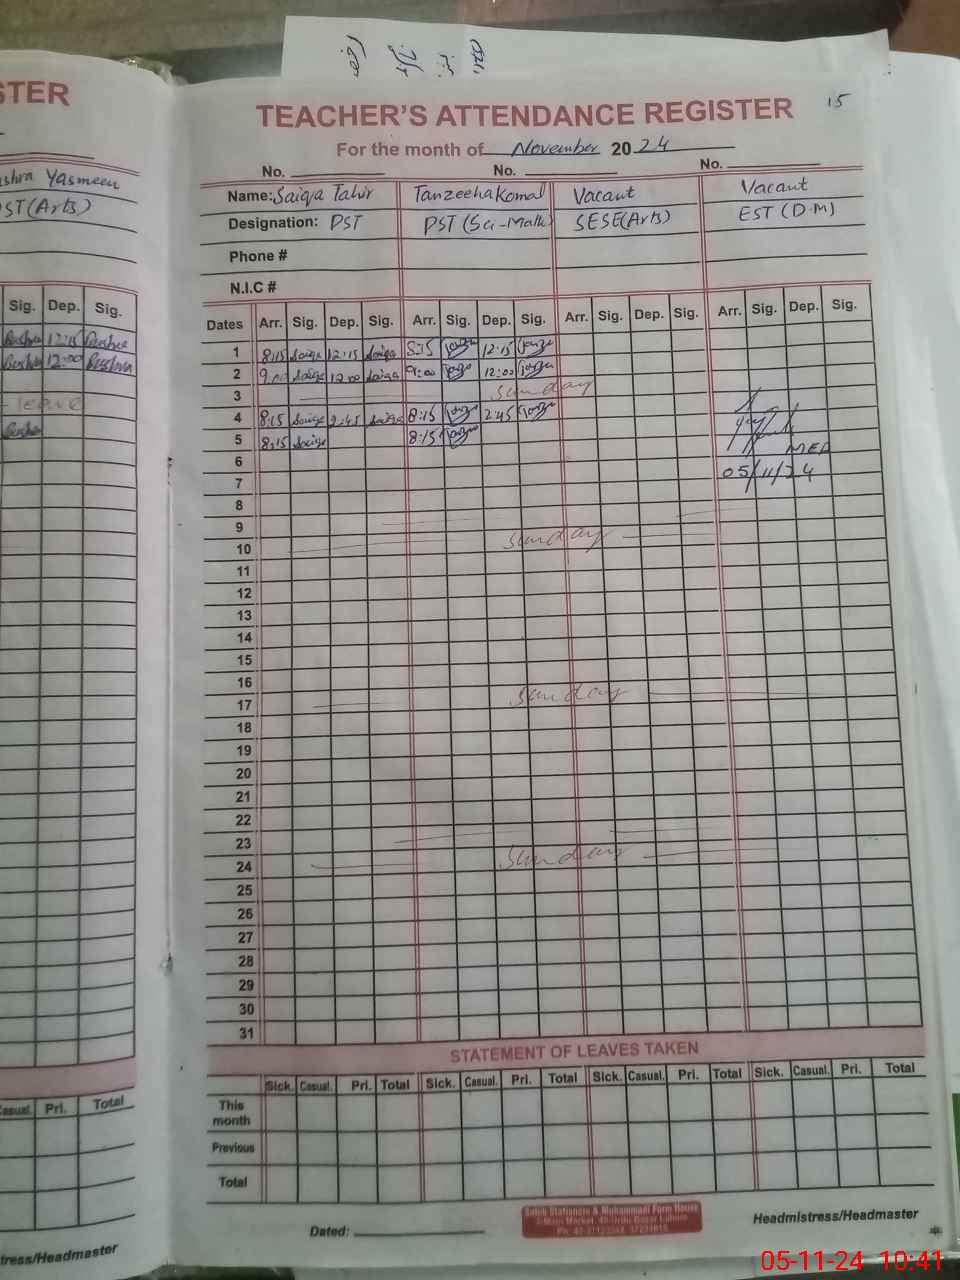 STER
Yasmeen
PST(Arts)
Sig. Dep. Sig.
12:15
12:00
leave
Casual. Pri. Total
tress/Headmaster
15
TEACHER'S ATTENDANCE REGISTER
For the month of November 2024
No. No. No.
Name: Saiqa Tahir Tanzeela Komal Vacant Vacant
Designation: PST PST (Sci-Math) SESE(Arts) EST (D.M)
Phone #
N.I.C #
Dates Arr. Sig. Dep. Sig. Arr. Sig. Dep. Sig. Arr. Sig. Dep. Sig. Arr. Sig. Dep. Sig.
1 8:15 Saiqa 12:15 Saiqa 8:15 12:15
2 9:00 Saiqa 12:00 Saiqa 9:00 12:00
3 Sunday
4 8:15 Saiqa 2:45 Saiqa 8:15 2:45
5 8:15 Saiqa 8:15
MEA
6
7 05/11/24
8
9
10 Sunday
11
12
13
14
15
16
17 Sunday
18
19
20
21
22
23
24 Sunday
25
26
27
28
29
30
31
STATEMENT OF LEAVES TAKEN
Sick. Casual. Pri. Total Sick. Casual. Pri. Total Sick. Casual. Pri. Total Sick. Casual. Pri. Total
This
month
Previous
Total
Dated:
Stationers & Muhammadi Form House
Headmistress/Headmaster
05-11-24 10:41